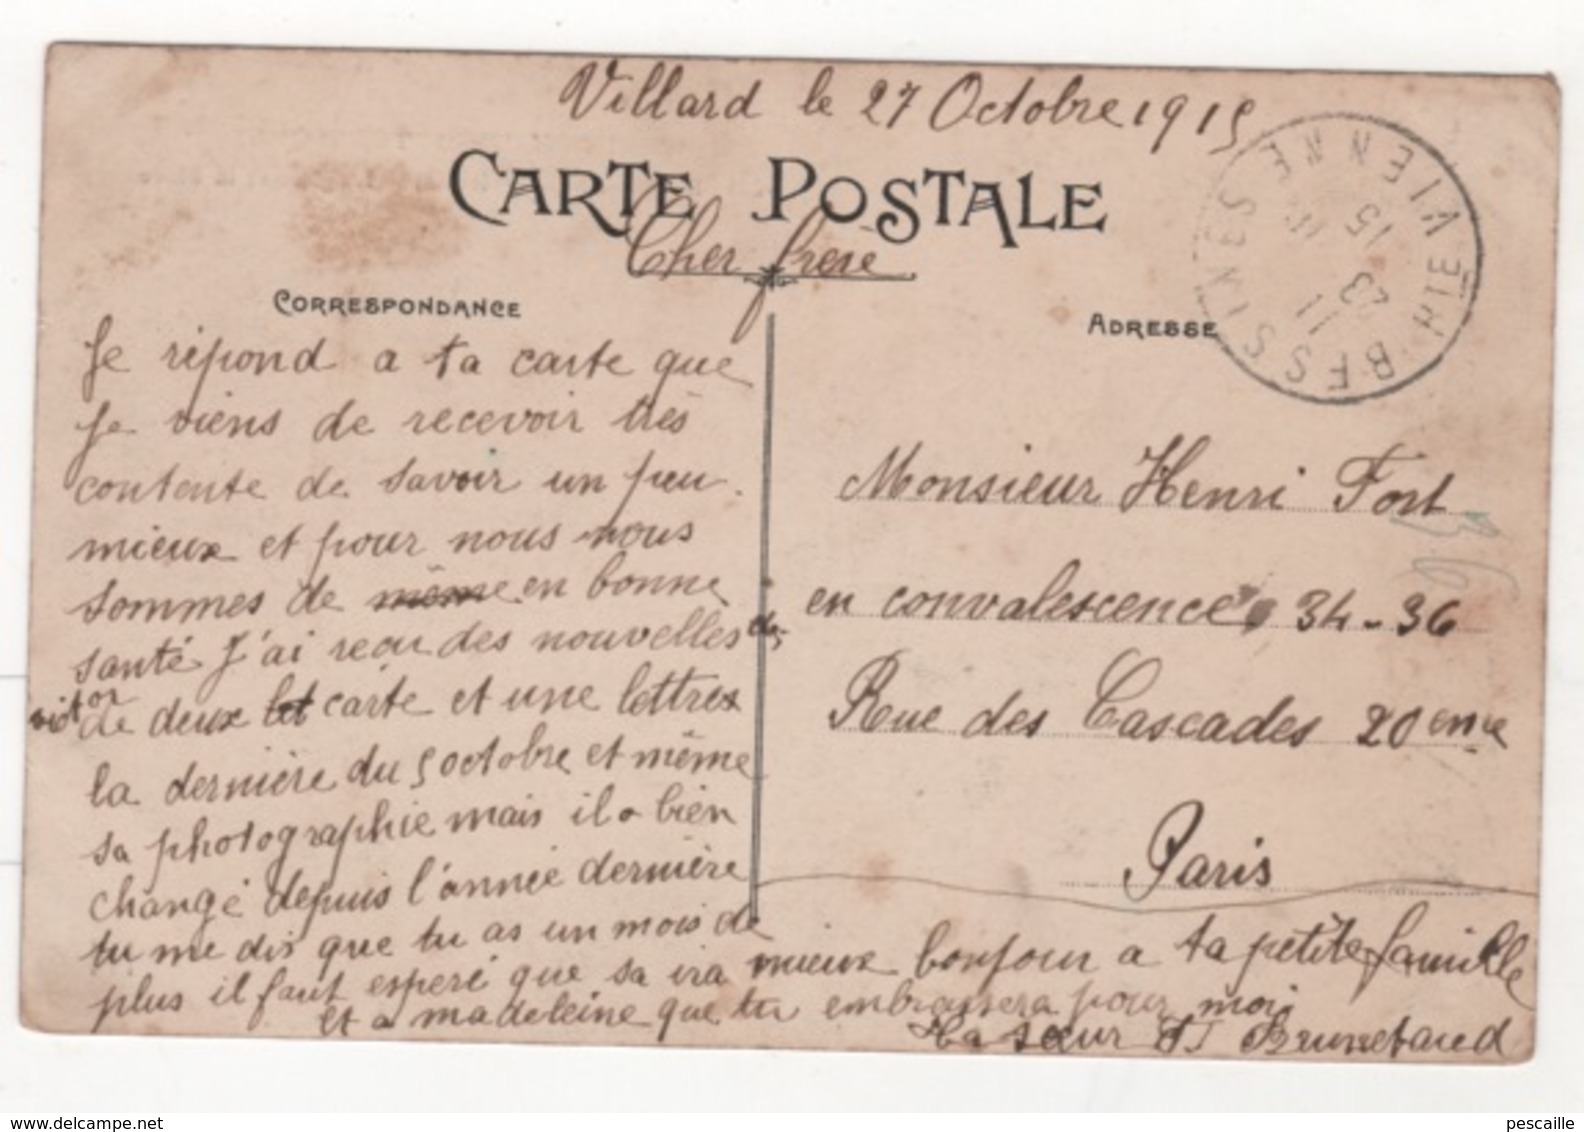 Villard le 27 Octobre 1915
CARTE POSTALE
Cher frere
CORRESPONDANCE
Je répond a ta carte que
je viens de recevoir très
contente de savoir un peu
mieux et pour nous nous
sommes de même en bonne
santé J'ai reçu des nouvelles de
victor
de deux let carte et une lettres
la dernière du 5 octobre et même
sa photographie mais il a bien
changé depuis l'année dernière
tu me dis que tu as un mois de
plus il faut esperé que sa ira mieux bonjour a ta petite famille
et a madeleine que tu embrassera pour moi
Ta sœur Brunetaud
ADRESSE
BESSINES
HTE VIENNE
23
11
15
Monsieur Henri Fort
en convalescence 34-36
Rue des Cascades 20eme
Paris
36
pescaille